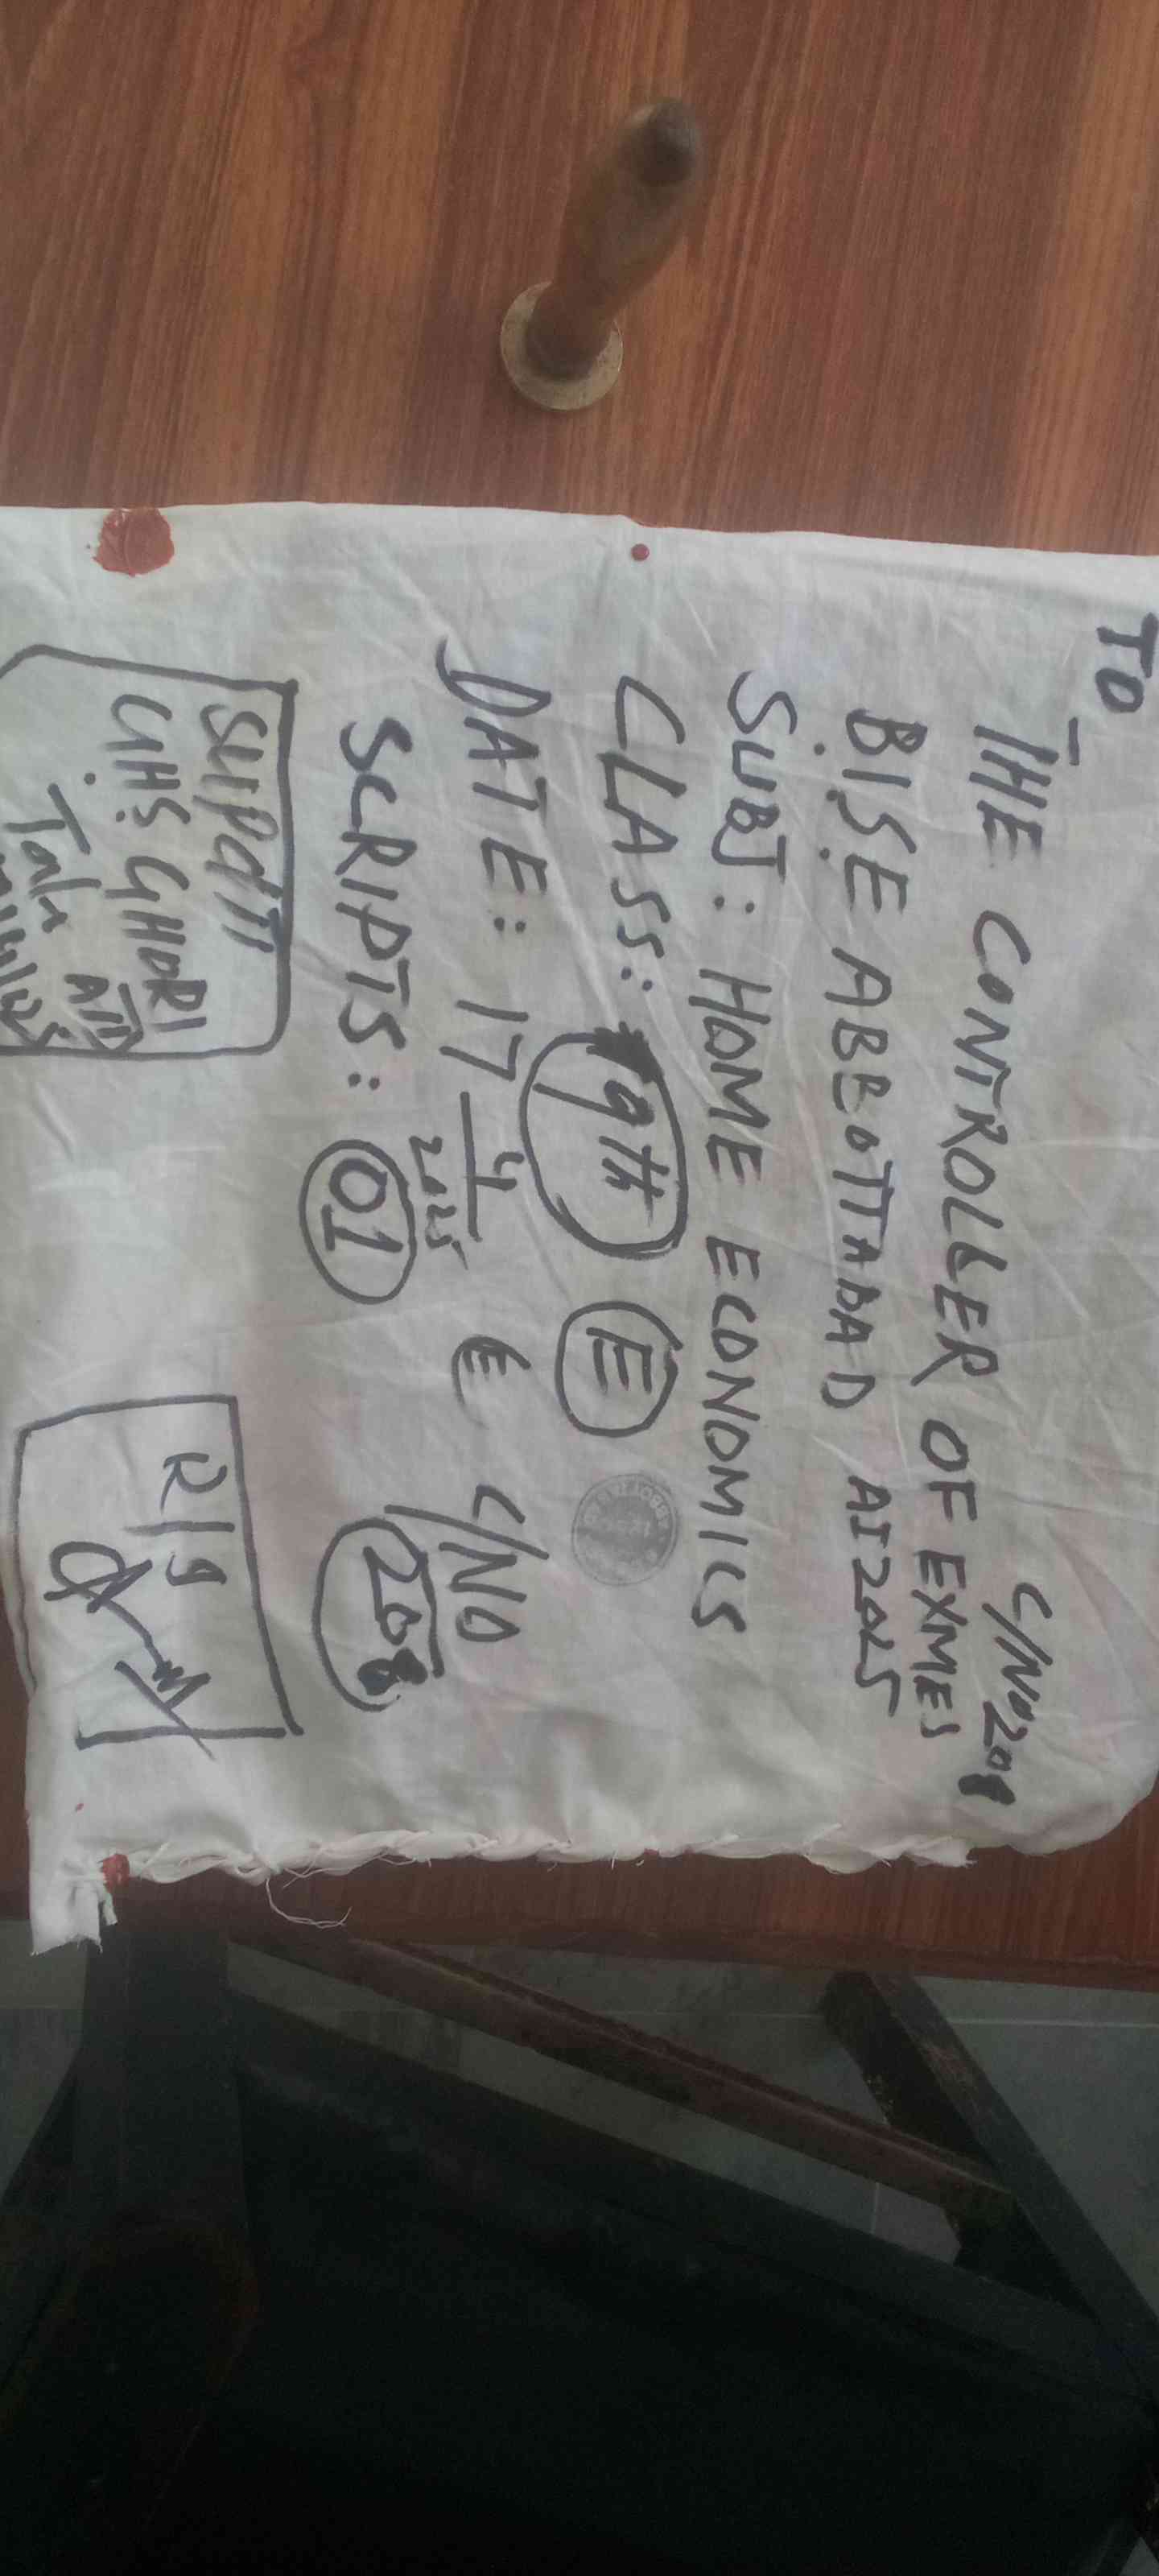 TO
C/No 208
THE CONTROLLER OF EXMES
B.I.S.E ABBOTTABAD AI2025
SUBJ: HOME ECONOMICS
CLASS: 9th E
DATE: 17 4 2025 E C/NO
SCRIPTS: 01 208
SUPdtt
GHS GHORI
ATD
R/S